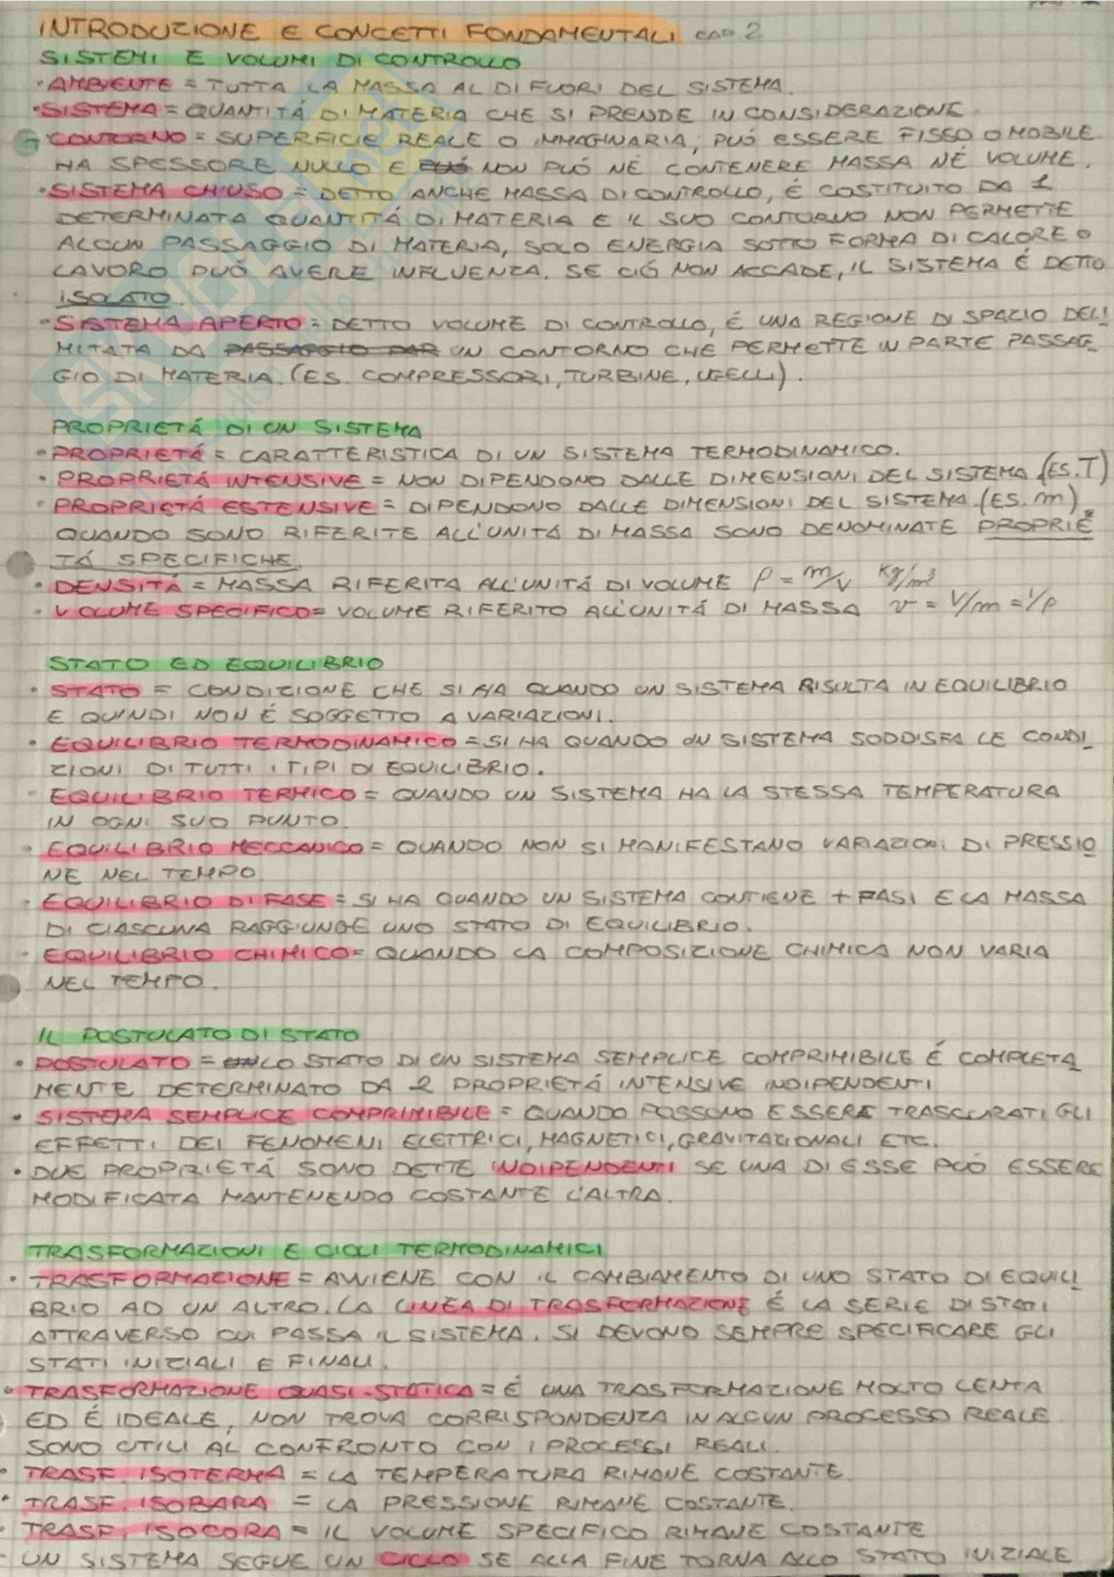 INTRODUZIONE E CONCETTI FONDAMENTALI CAP 2
SISTEMI E VOLUMI DI CONTROLLO
• AMBIENTE = TUTTA LA MASSA AL DI FUORI DEL SISTEMA.
• SISTEMA = QUANTITÁ DI MATERIA CHE SI PRENDE IN CONSIDERAZIONE.
CONTORNO = SUPERFICIE REALE O IMMAGINARIA, PUÓ ESSERE FISSO O MOBILE
HA SPESSORE NULLO E PUÓ NON PUÓ NÉ CONTENERE MASSA NÉ VOLUME.
• SISTEMA CHIUSO = DETTO ANCHE MASSA DI CONTROLLO, É COSTITUITO DA 1
DETERMINATA QUANTITÁ DI MATERIA E IL SUO CONTORNO NON PERMETTE
ALCUN PASSAGGIO DI MATERIA, SOLO ENERGIA SOTTO FORMA DI CALORE O
LAVORO PUÓ AVERE INFLUENZA. SE CIÓ NON ACCADE, IL SISTEMA É DETTO
ISOLATO.
• SISTEMA APERTO = DETTO VOLUME DI CONTROLLO, É UNA REGIONE DI SPAZIO DELI
MITATA DA PASSAGGIO DAR UN CONTORNO CHE PERMETTE IN PARTE PASSAG_
GIO DI MATERIA. (ES. COMPRESSORI, TURBINE, UGELLI).
PROPRIETÁ DI UN SISTEMA
• PROPRIETÁ = CARATTERISTICA DI UN SISTEMA TERMODINAMICO.
• PROPRIETÁ INTENSIVE = NON DIPENDONO DALLE DIMENSIONI DEL SISTEMA (ES. T)
• PROPRIETÁ ESTENSIVE = DIPENDONO DALLE DIMENSIONI DEL SISTEMA. (ES. m),
QUANDO SONO RIFERITE ALL'UNITÁ DI MASSA SONO DENOMINATE PROPRIE
TÁ SPECIFICHE.
• DENSITÁ = MASSA RIFERITA ALL'UNITÁ DI VOLUME ρ = m/V kg/m³
• VOLUME SPECIFICO = VOLUME RIFERITO ALL'UNITÁ DI MASSA v = V/m = 1/ρ
STATO ED EQUILIBRIO
• STATO = CONDIZIONE CHE SI HA QUANDO UN SISTEMA RISULTA IN EQUILIBRIO
E QUINDI NON É SOGGETTO A VARIAZIONI.
• EQUILIBRIO TERMODINAMICO = SI HA QUANDO UN SISTEMA SODDISFA LE CONDI_
ZIONI DI TUTTI I TIPI DI EQUILIBRIO.
• EQUILIBRIO TERMICO = QUANDO UN SISTEMA HA LA STESSA TEMPERATURA
IN OGNI SUO PUNTO.
• EQUILIBRIO MECCANICO = QUANDO NON SI MANIFESTANO VARIAZIONI DI PRESSIO
NE NEL TEMPO.
• EQUILIBRIO DI FASE = SI HA QUANDO UN SISTEMA CONTIENE + FASI E LA MASSA
DI CIASCUNA RAGGIUNGE UNO STATO DI EQUILIBRIO.
• EQUILIBRIO CHIMICO = QUANDO LA COMPOSIZIONE CHIMICA NON VARIA
NEL TEMPO.
IL POSTULATO DI STATO
• POSTULATO = LO STATO DI UN SISTEMA SEMPLICE COMPRIMIBILE É COMPLETA
MENTE DETERMINATO DA 2 PROPRIETÁ INTENSIVE INDIPENDENTI
• SISTEMA SEMPLICE COMPRIMIBILE = QUANDO POSSONO ESSERE TRASCURATI GLI
EFFETTI DEI FENOMENI ELETTRICI, MAGNETICI, GRAVITAZIONALI ETC.
• DUE PROPRIETÁ SONO DETTE INDIPENDENTI SE UNA DI ESSE PUÓ ESSERE
MODIFICATA MANTENENDO COSTANTE L'ALTRA.
TRASFORMAZIONI E CICLI TERMODINAMICI
• TRASFORMAZIONE = AVVIENE CON IL CAMBIAMENTO DI UNO STATO DI EQUILI
BRIO AD UN ALTRO. LA LINEA DI TRASFORMAZIONE É LA SERIE DI STATI
ATTRAVERSO CUI PASSA IL SISTEMA. SI DEVONO SEMPRE SPECIFICARE GLI
STATI INIZIALI E FINALI.
• TRASFORMAZIONE QUASI-STATICA = É UNA TRASFORMAZIONE MOLTO LENTA
ED É IDEALE, NON TROVA CORRISPONDENZA IN ALCUN PROCESSO REALE
SONO UTILI AL CONFRONTO CON I PROCESSI REALI.
• TRASF. ISOTERMA = LA TEMPERATURA RIMANE COSTANTE.
• TRASF. ISOBARA = LA PRESSIONE RIMANE COSTANTE.
• TRASF. ISOCORA = IL VOLUME SPECIFICO RIMANE COSTANTE
- UN SISTEMA SEGUE UN CICLO SE ALLA FINE TORNA ALLO STATO INIZIALE